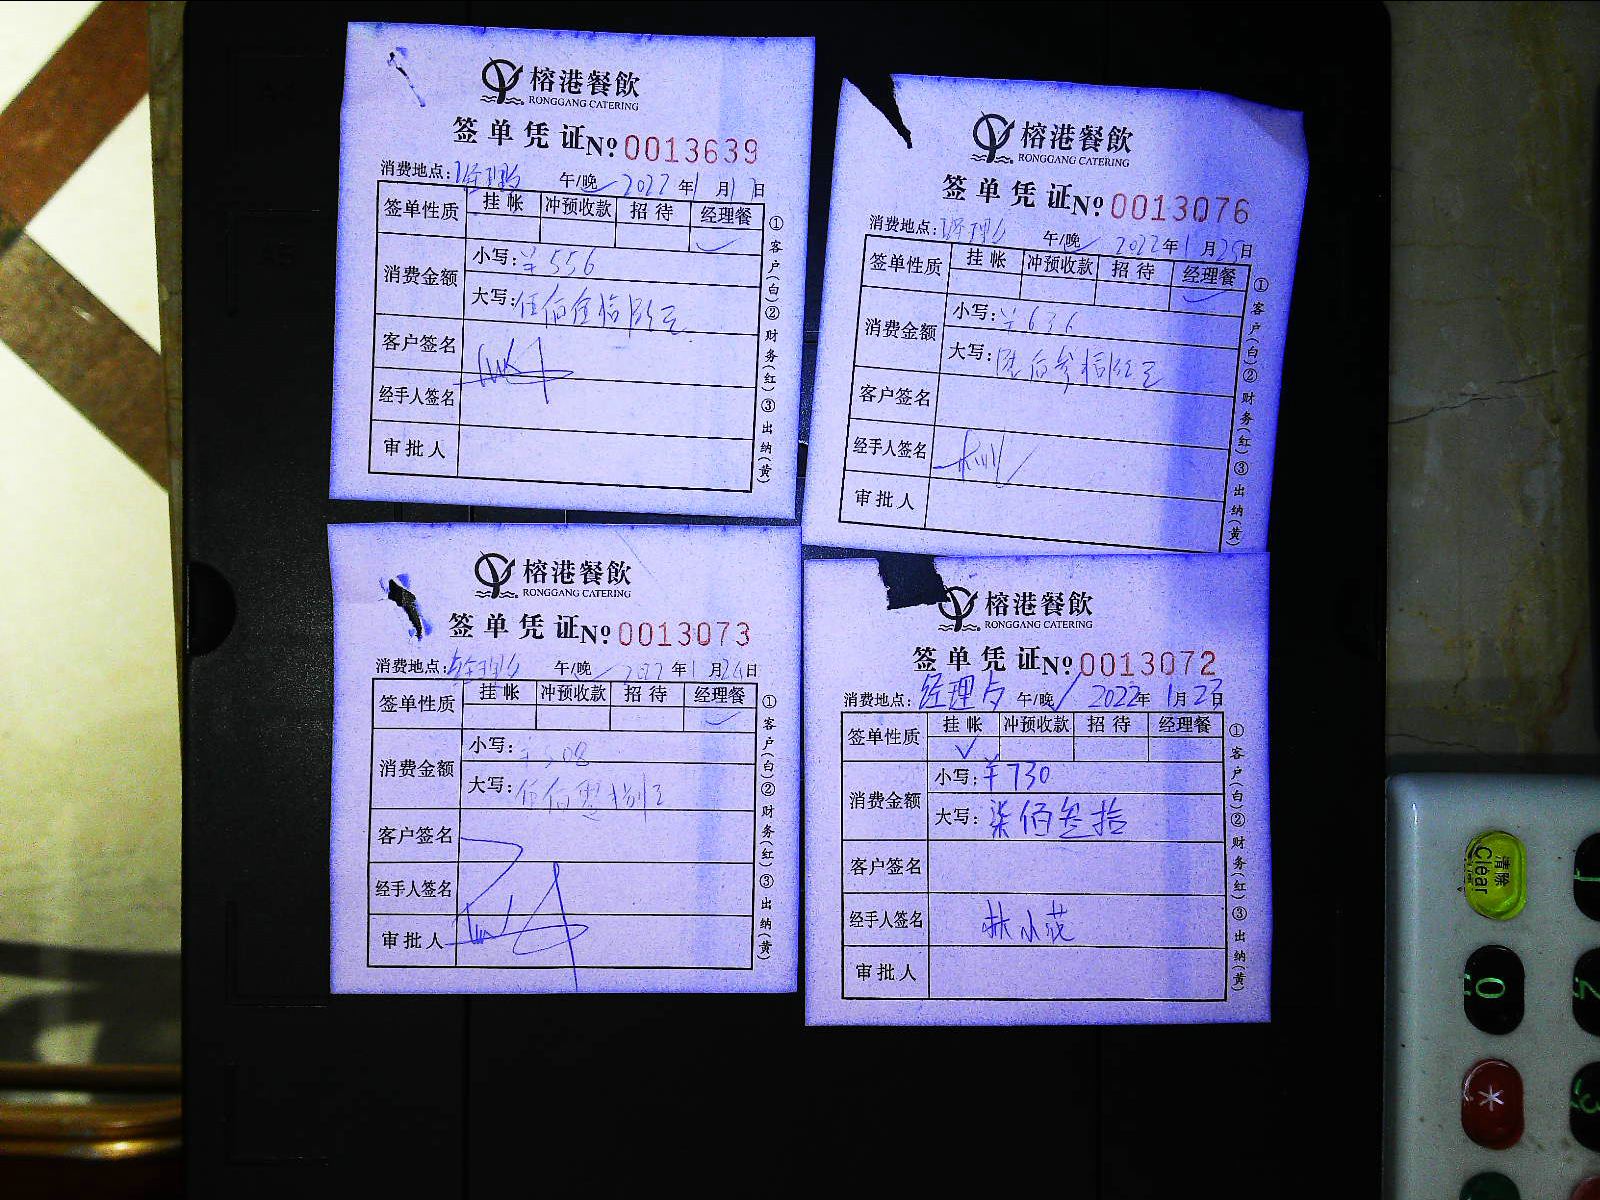 榕港餐飲
RONGGANG CATERING
签单凭证№0013639
消费地点: 午/晚 2022年1月17日
签单性质 挂帐 冲预收款 招待 经理餐
✓
消费金额 小写:¥556
大写:伍佰伍拾陆元
客户签名
经手人签名
审批人
①客户(白)②财务(红)③出纳(黄)
榕港餐飲
RONGGANG CATERING
签单凭证№0013076
消费地点: 午/晚 2022年1月25日
签单性质 挂帐 冲预收款 招待 经理餐
✓
消费金额 小写:¥636
大写:陆佰叁拾陆元
客户签名
经手人签名
审批人
①客户(白)②财务(红)③出纳(黄)
榕港餐飲
RONGGANG CATERING
签单凭证№0013073
消费地点: 午/晚 2022年1月24日
签单性质 挂帐 冲预收款 招待 经理餐
✓
消费金额 小写:¥508
大写:伍佰零捌元
客户签名
经手人签名
审批人
①客户(白)②财务(红)③出纳(黄)
榕港餐飲
RONGGANG CATERING
签单凭证№0013072
消费地点:经理 午/晚✓ 2022年1月23日
签单性质 挂帐 冲预收款 招待 经理餐
✓
消费金额 小写:¥730
大写:柒佰叁拾
客户签名
经手人签名 林小
审批人
①客户(白)②财务(红)③出纳(黄)
清除
Clear
1
0
2
*
3